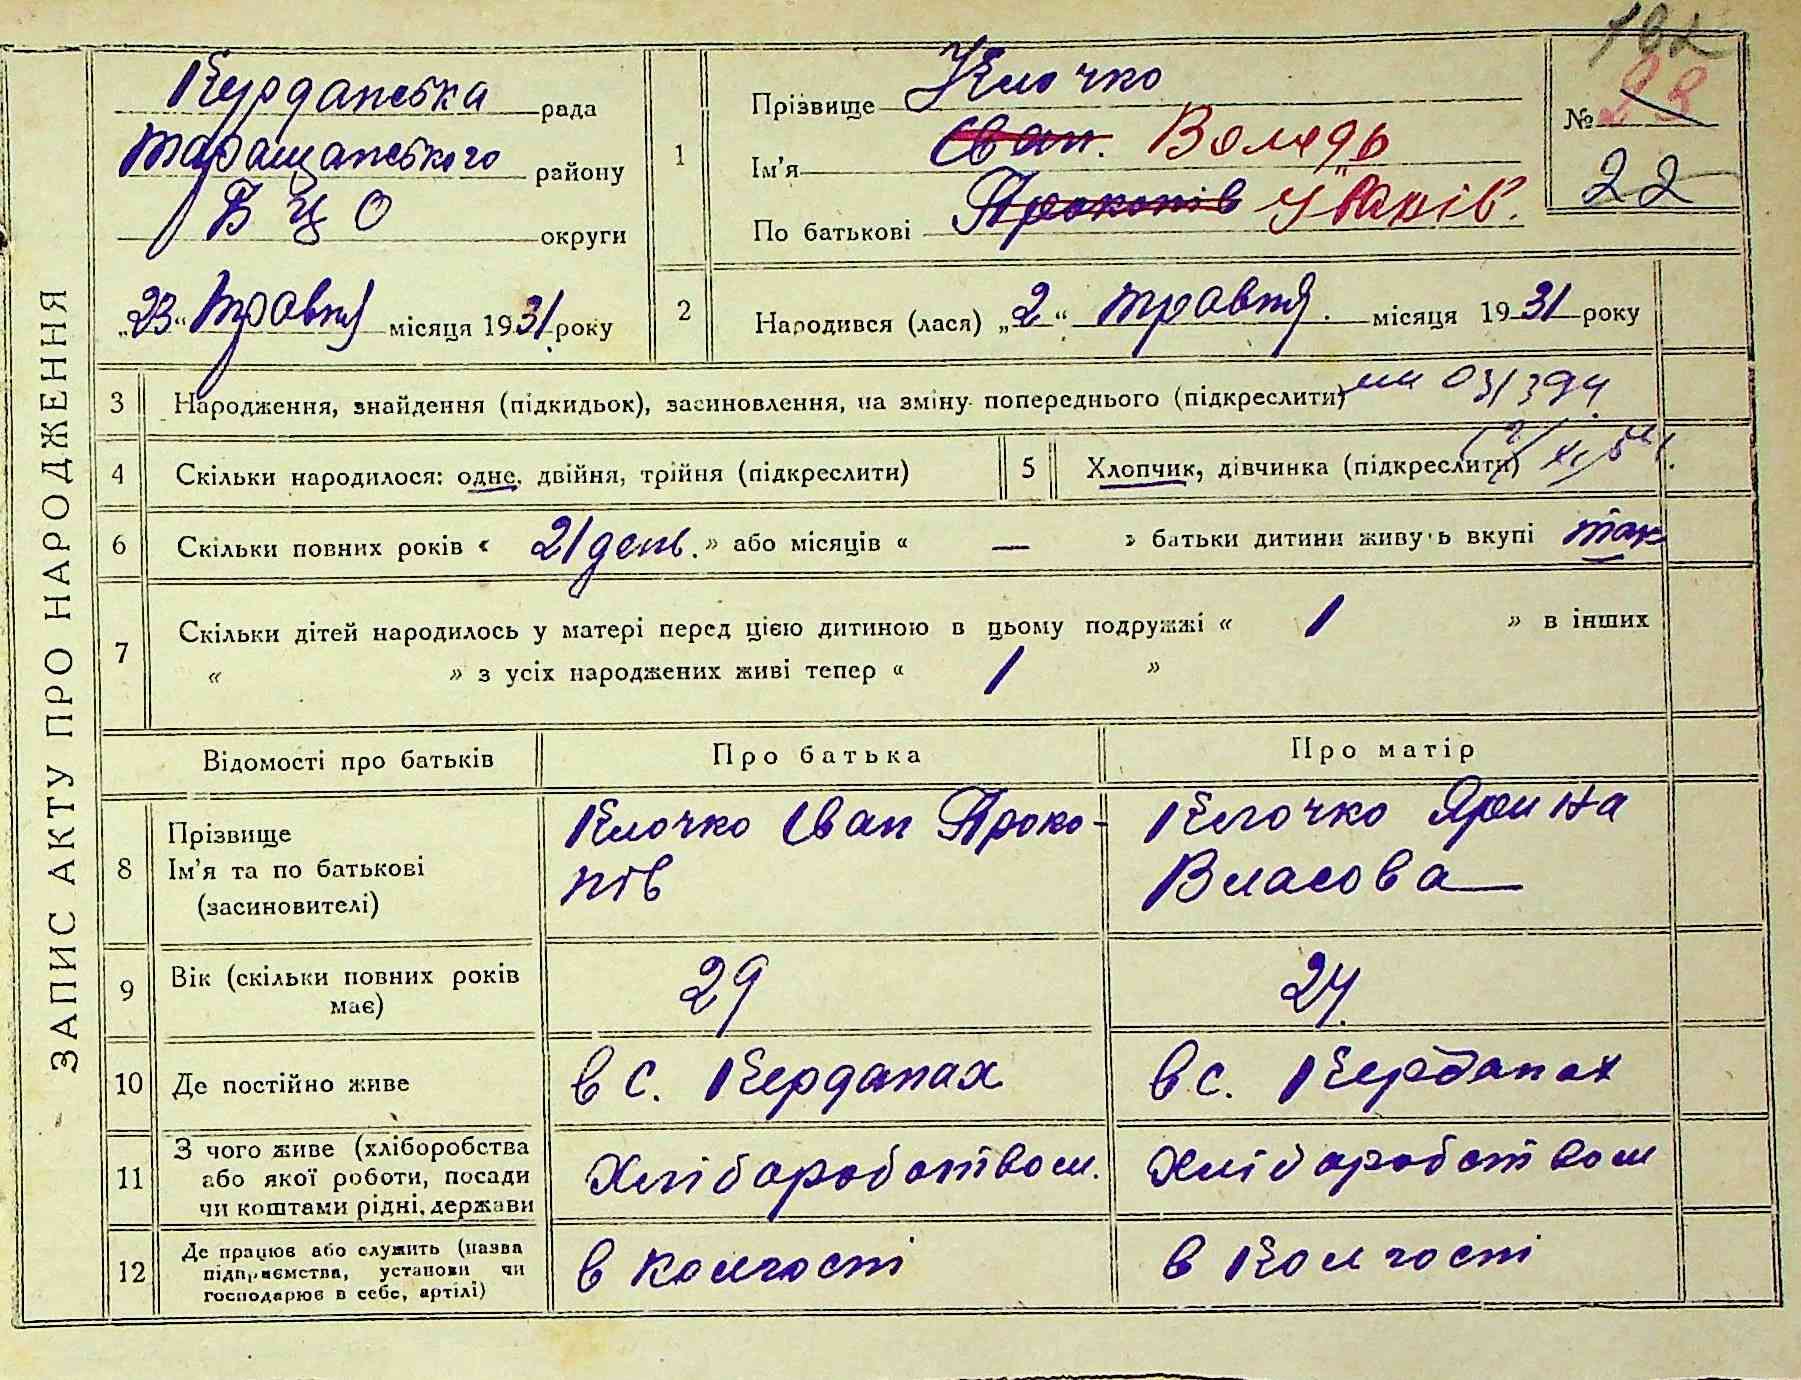 ЗАПИС АКТУ ПРО НАРОДЖЕННЯ
Керданська рада
Таращанського району
БЦО округи
„23“ травня місяця 1931 року
1
Прізвище Клочко
Ім'я Іван. Володь
По батькові Прокопів Іванів.
102
№ 23
22
2
Народився (лася) „2“ травня. місяця 1931 року
3 Народження, знайдення (підкидьок), засиновлення, на зміну попереднього (підкреслити)
4 Скільки народилося: одне, двійня, трійня (підкреслити)
5 Хлопчик, дівчинка (підкреслити)
6 Скільки повних років « 21 день. » або місяців « — » батьки дитини живуть вкупі так
7 Скільки дітей народилось у матері перед цією дитиною в цьому подружжі « 1 » в інших
« » з усіх народжених живі тепер « 1 »
Відомості про батьків Про батька Про матір
8 Прізвище
Ім'я та по батькові
(засиновителі)
Клочко Іван Проко-
пів
Клочко Ярина
Власова
9 Вік (скільки повних років
має)
29
24.
10 Де постійно живе в с. Керданах в с. Керданах
11 З чого живе (хліборобства
або якої роботи, посади
чи коштами рідні, держави
Хліборобством.
Хліборобством
12 Де працює або служить (назва
підприємства, установи чи
господарює в себе, артілі)
в колгості
в колгості